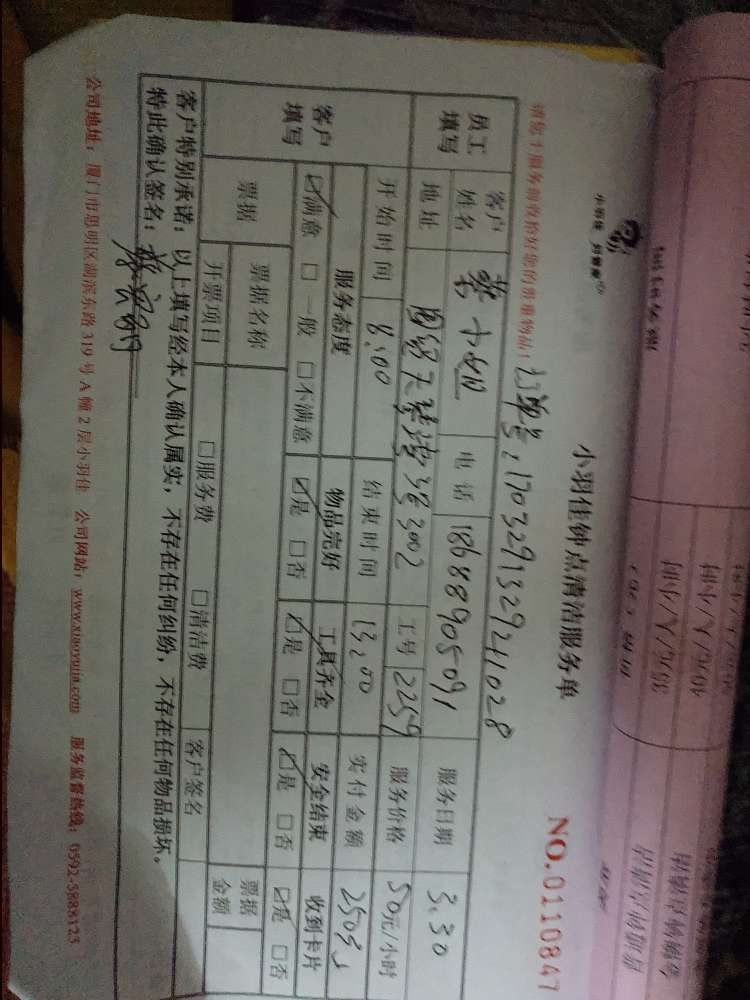 小羽佳钟点清洁服务单
NO.0110847
小羽佳 好管家
请您于服务前收拾好您的贵重物品！
订单号：17032913294 1028
员工填写
客户姓名 蔡小姐 电话 18688905091 服务日期 3.30
地址 3002 工号 2259 服务价格 50元/小时
客户填写
开始时间 8:00 结束时间 13:00 实付金额 250
服务态度 物品完好 工具齐全 安全结束 收到卡片
☑满意 □一般 □不满意 ☑是 □否 ☑是 □否 ☑是 □否 ☑是 □否
票据 票据名称 票据金额
开票项目 □服务费 □清洁费 客户签名
客户特别承诺：以上填写经本人确认属实，不存在任何纠纷，不存在任何物品损坏。
特此确认签名：
公司地址：厦门市思明区湖滨东路319号A幢2层小羽佳 公司网站：www.xiaoyujia.com 服务监督热线：0592-5888123